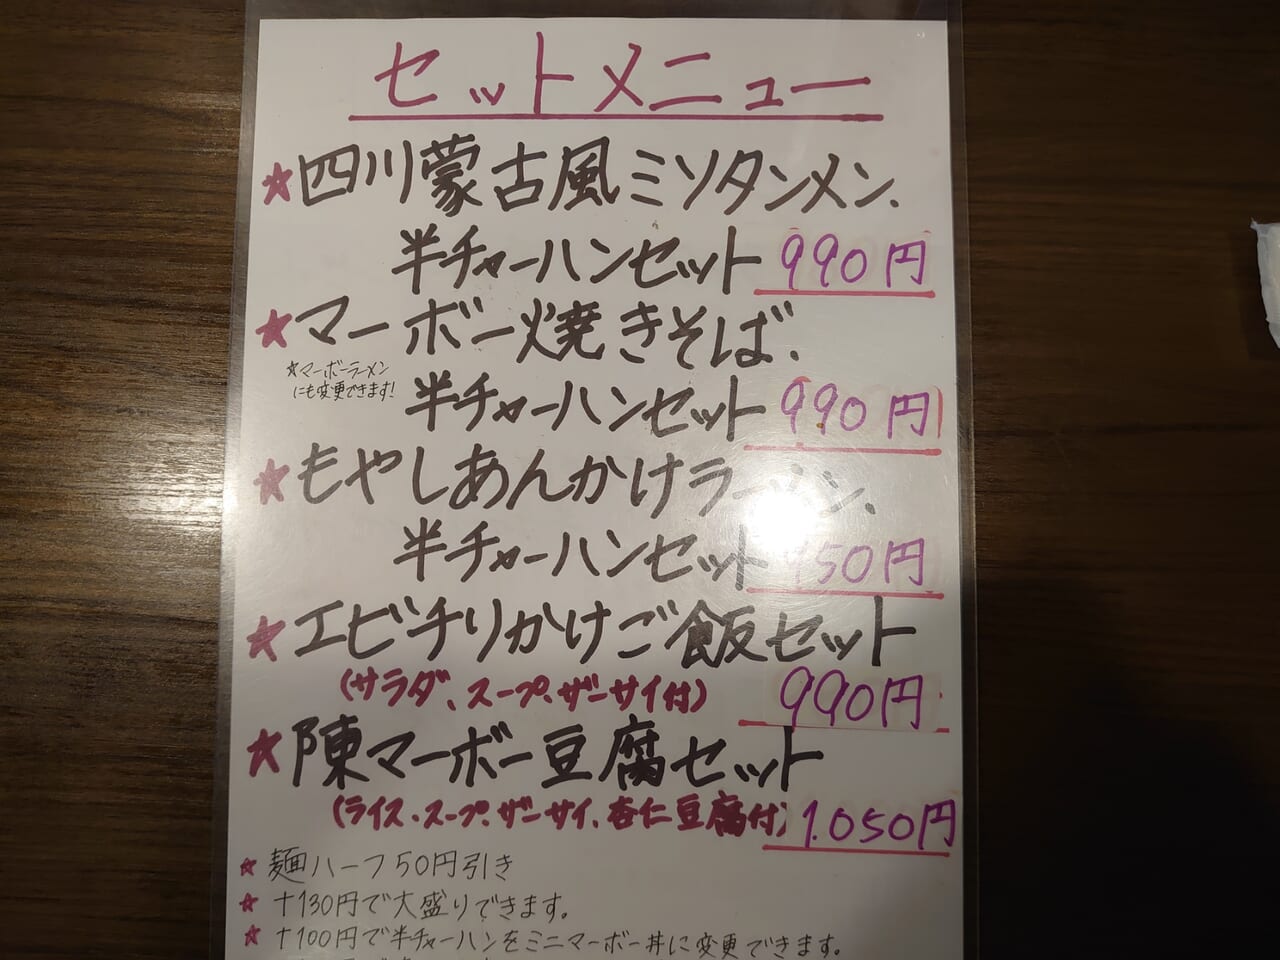 セットメニュー
★四川蒙古風ミソタンメン、
半チャーハンセット 990円
★マーボー焼きそば、
★マーボーラーメン
にも変更できます!
半チャーハンセット 990円
★もやしあんかけラーメン、
半チャーハンセット 50円
★エビチリかけご飯セット
(サラダ、スープ、ザーサイ付) 990円
★陳マーボー豆腐セット
(ライス、スープ、ザーサイ、杏仁豆腐付) 1.050円
★麺ハーフ50円引き
★+130円で大盛りできます。
★+100円で半チャーハンをミニマーボー丼に変更できます。